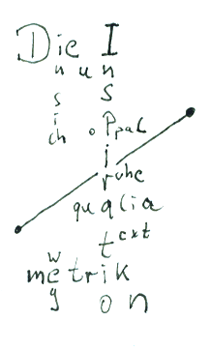 Die I
nun n
s S
i
ch o Ppal
i
ruhe
qualia
text
w
metrik
g o n